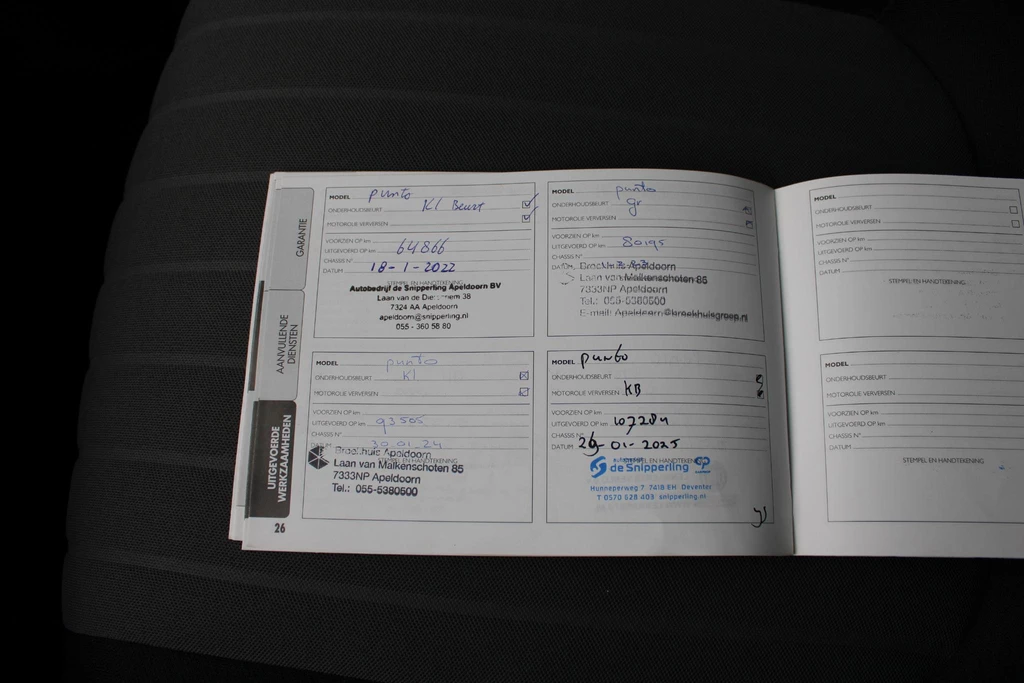 GARANTIE
AANVULLENDE
DIENSTEN
UITGEVOERDE
WERKZAAMHEDEN
26
MODEL punto
ONDERHOUDSBEURT Kl Beurt
MOTOROLIE VERVERSEN
VOORZIEN OP km
UITGEVOERD OP km 64866
CHASSIS N°
DATUM 18-1-2022
STEMPEL EN HANDTEKENING
Autobedrijf de Snipperling Apeldoorn BV
Laan van de 38
7324 AA Apeldoorn
apeldoorn@snipperling.nl
055 - 360 58 80
MODEL punto
ONDERHOUDSBEURT gr
MOTOROLIE VERVERSEN
VOORZIEN OP km
UITGEVOERD OP km 80195
CHASSIS N°
DATUM
Broekhuis Apeldoorn
Laan van Malkenschoten 85
7333NP Apeldoorn
Tel.: 055-5380500
E-mail: Apeldoorn@broekhuisgroep.nl
MODEL punto
ONDERHOUDSBEURT Kl
MOTOROLIE VERVERSEN
VOORZIEN OP km
UITGEVOERD OP km 93505
CHASSIS N°
DATUM 30-01-24
STEMPEL EN HANDTEKENING
Broekhuis Apeldoorn
Laan van Malkenschoten 85
7333NP Apeldoorn
Tel.: 055-5380500
MODEL punto
ONDERHOUDSBEURT
MOTOROLIE VERVERSEN KB
VOORZIEN OP km
UITGEVOERD OP km 107284
CHASSIS N°
DATUM 29-01-2025
STEMPEL EN HANDTEKENING
de Snipperling
Hunneperweg 7 7418 EH Deventer
T 0570 628 403 snipperling.nl
MODEL
ONDERHOUDSBEURT
MOTOROLIE VERVERSEN
VOORZIEN OP km
UITGEVOERD OP km
CHASSIS N°
DATUM
STEMPEL EN HANDTEKENING
MODEL
ONDERHOUDSBEURT
MOTOROLIE VERVERSEN
VOORZIEN OP km
UITGEVOERD OP km
CHASSIS N°
DATUM
STEMPEL EN HANDTEKENING